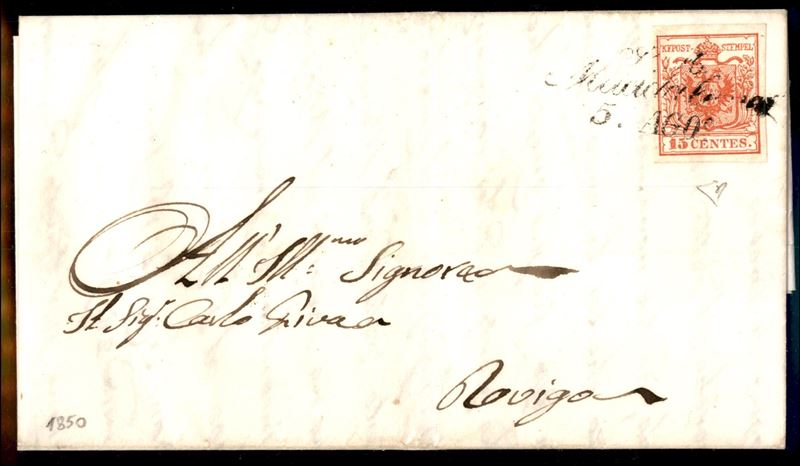 KKPOST-STEMPEL
15 CENTES.
5. AGO°
All' Ill.mo Signore
Il Sig.r Carlo Riva
Rovigo
1850